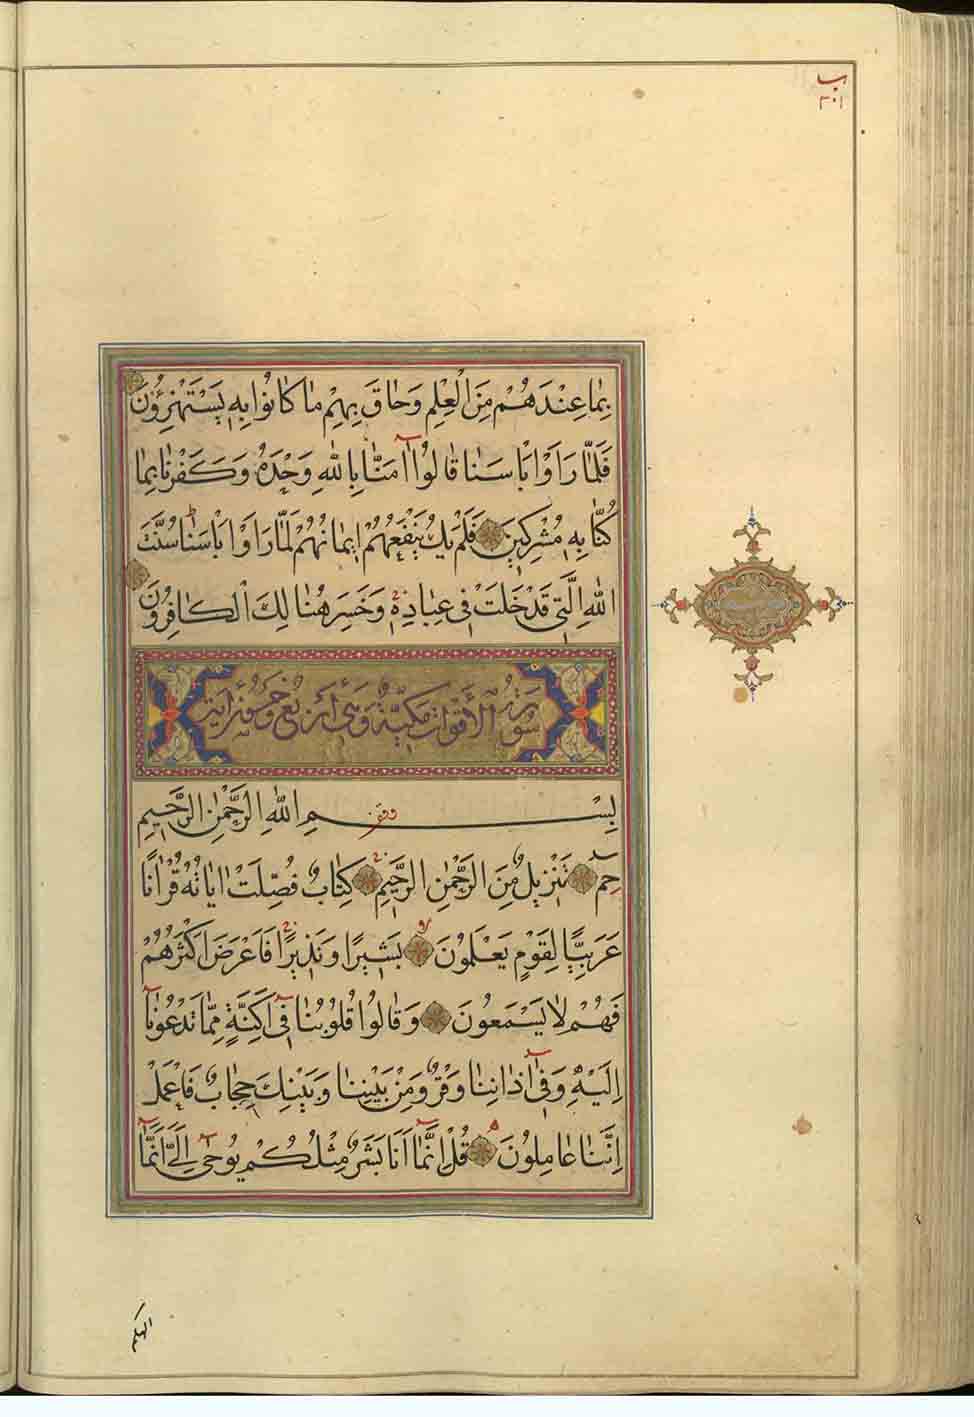 ب
٣٠١
بِمَا عِنْدَهُمْ مِنَ الْعِلْمِ وَحَاقَ بِهِمْ مَا كَانُوا بِهِ يَسْتَهْزِؤُنَ
فَلَمَّا رَاَوْا بَاْسَنَا قَالُوا اٰمَنَّا بِاللهِ وَحْدَهُ وَكَفَرْنَا بِمَا
كُنَّا بِهِ مُشْرِكِينَ فَلَمْ يَكُ يَنْفَعُهُمْ اِيمَانُهُمْ لَمَّا رَاَوْا بَاْسَنَا سُنَّتَ
اللهِ الَّتِي قَدْ خَلَتْ فِي عِبَادِهِ وَخَسِرَ هُنَالِكَ الْكَافِرُونَ
سورة الأقوات مكيّة وهي أربع وخمسون اية
بِسْمِ اللهِ الرَّحْمٰنِ الرَّحِيمِ
حٰم تَنْزِيلٌ مِنَ الرَّحْمٰنِ الرَّحِيمِ كِتَابٌ فُصِّلَتْ اٰيَاتُهُ قُرْاٰنًا
عَرَبِيًّا لِقَوْمٍ يَعْلَمُونَ بَشِيرًا وَنَذِيرًا فَاَعْرَضَ اَكْثَرُهُمْ
فَهُمْ لَا يَسْمَعُونَ وَقَالُوا قُلُوبُنَا فِي اَكِنَّةٍ مِمَّا تَدْعُونَا
اِلَيْهِ وَفِي اٰذَانِنَا وَقْرٌ وَمِنْ بَيْنِنَا وَبَيْنِكَ حِجَابٌ فَاعْمَلْ
اِنَّنَا عَامِلُونَ قُلْ اِنَّمَا اَنَا بَشَرٌ مِثْلُكُمْ يُوحٰى اِلَيَّ اَنَّمَا
الهكم